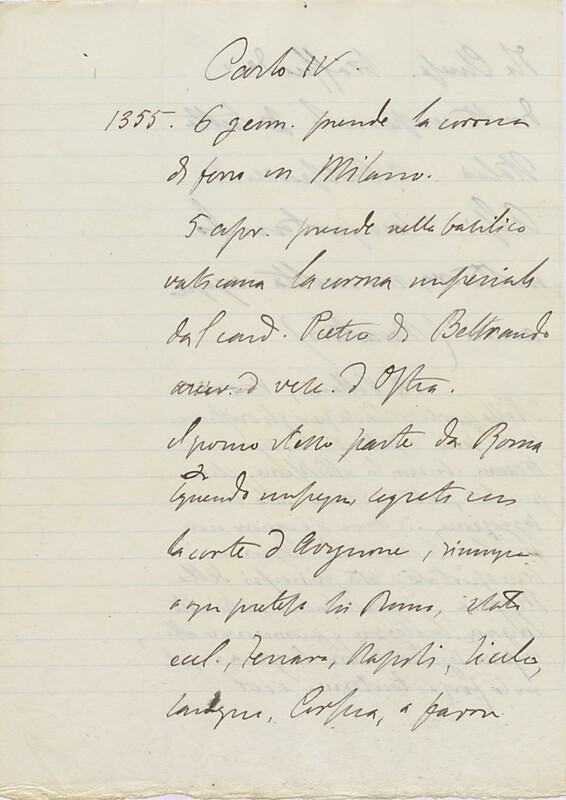 Carlo IV.
1355. 6 genn. prende la corona
di ferro in Milano.
5 apr. prende nella basilica
vaticana la corona imperiale
dal card. Pietro di Beltrando
vesc. d'Ostia.
Il giorno stesso parte da Roma
impegni segreti con
la corte d'Avignone, rinunzia
a ogni pretesa su Roma, stati
eccl., Ferrara, Napoli, Sicilia,
Sardegna, Corsica, a favore